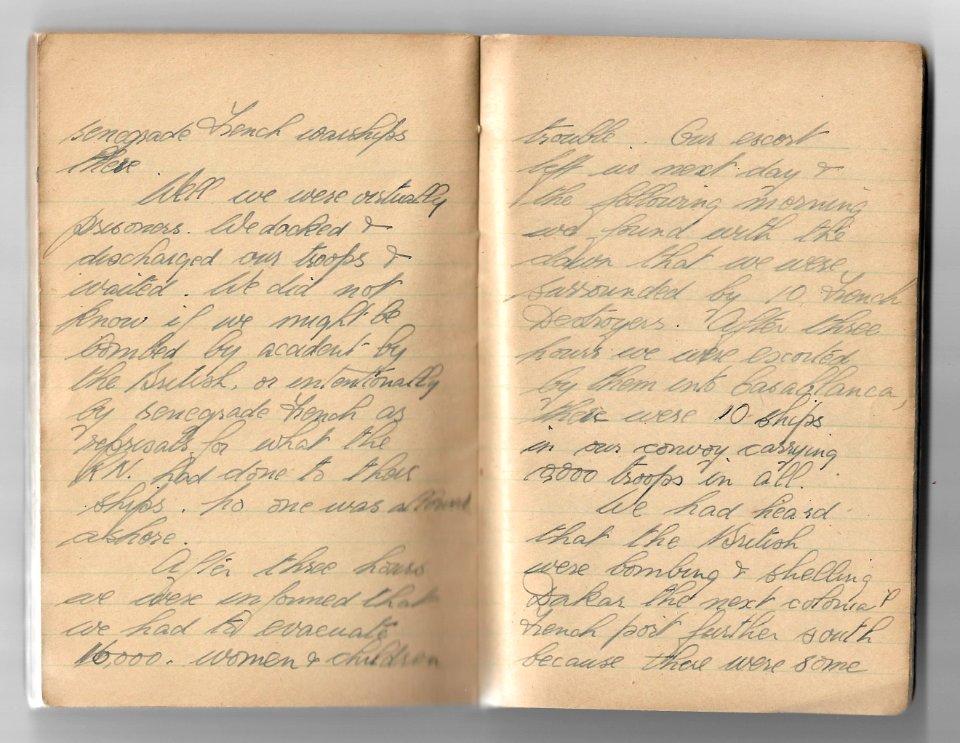 senegrade French warships
there.
Well we were virtually
prisoners. We docked &
discharged our troops &
waited. We did not
know if we might be
bombed by accident by
the British, or intentionally
by senegrade French as
reprisals for what the
R.N. had done to their
ships. No one was allowed
ashore.
After three hours
we were informed that
we had to evacuate
16,000. women & children
trouble. Our escort
left us next day &
the following morning
we found with the
dawn that we were
surrounded by 10 French
Destroyers. After three
hours we were escorted
by them into Casablanca,
there were 10 ships
in our convoy carrying
troops in all.
We had heard
that the British
were bombing & shelling
Dakar the next colonial
French port further south
because there were some